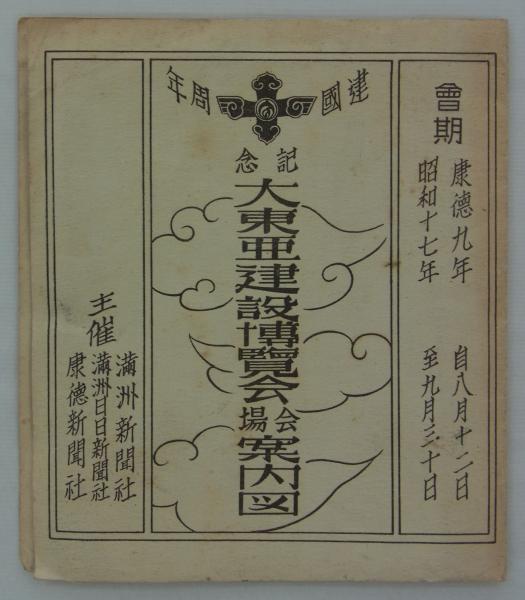 會期
康德九年
昭和十七年
自八月十二日
至九月三十日
建國 周年
記念
大東亜建設博覧会
会場
案内図
主催
滿洲新聞社
滿洲日日新聞社
康德新聞社